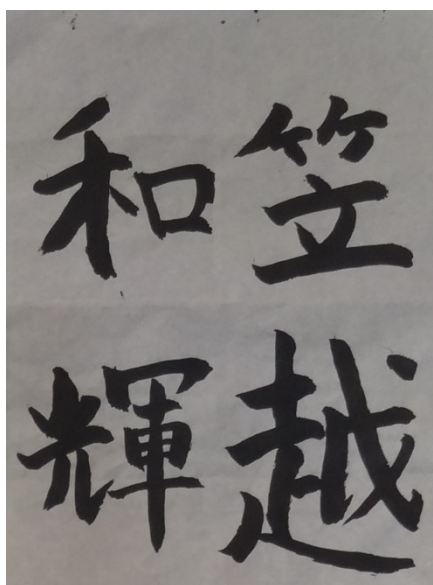 笠越
和輝